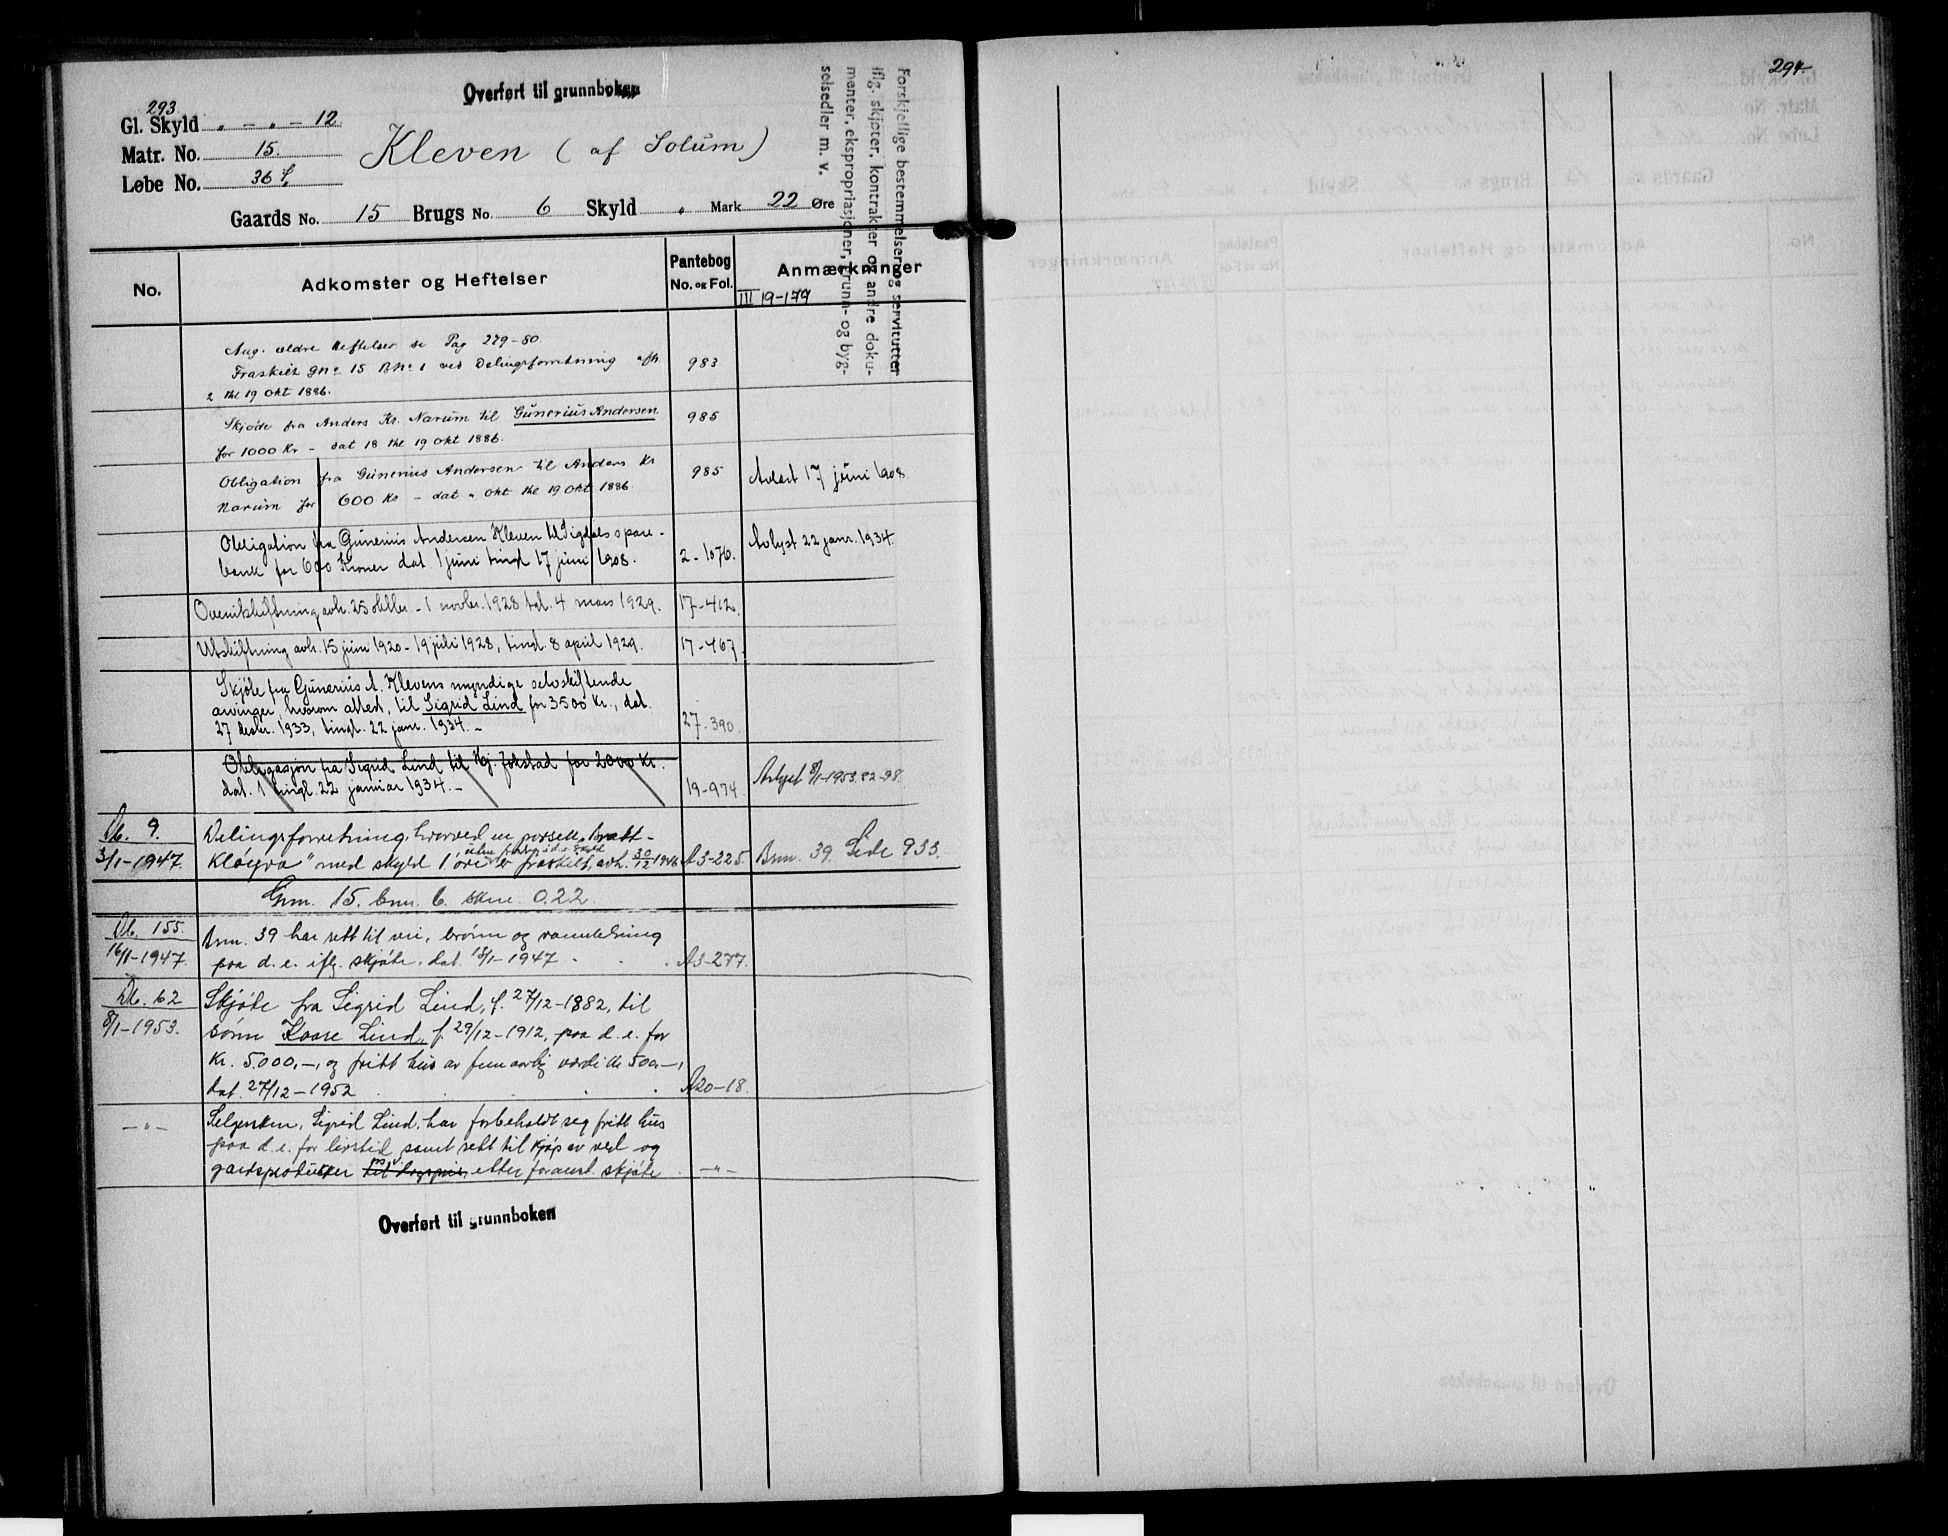 293
Overført til grunnboken
Gl. Skyld „ - „ - 12
Matr. No. 15.
Løbe No. 36 f.
Kleven (af Solum)
Gaards No. 15 Brugs No. 6 Skyld „ Mark 22 Øre
Forskjellige bestemmelser og servitutter
iflg. skjøter, kontrakter og andre doku-
menter, ekspropriasjoner, grunn- og byg-
selsedler m. v.
No.
Adkomster og Heftelser
Pantebog
No. og Fol.
Anmærkninger
III 19-179
Ang. ældre Heftelser se Pag 279-80
Fraskilt Gno 15 Bno 1 ved Delingsforretning afh.
2 thl 19 Okt 1886.
983
Skjøde fra Anders Kr. Narum til Gunerius Andersen
for 1000 Kr - dat 18 thl 19 Okt 1886.
985
Obligation fra Gunerius Andersen til Anders Kr
Narum for 600 Kr - dat „ Okt thl 19 Okt 1886.
985
Avlæst 17 juni 1908
Obligation fra Gunerius Andersen Kleven til Sigdals spare-
bank for 600 Kroner dat 1 juni tingl 17 juni 1908.
2-1076.
Avlyst 22 janr. 1934.
avh. 25 oktbr. - 1 novbr. 1928 tgl. 4 mars 1929.
17-412.
Utskiftning avh. 15 juni 1920 - 19 juli 1928, tingl. 8 april 1929.
17-467.
Skjøte fra Gunerius A. Klevens myndige selvskiftende
arvinger, hvorom attest, til Sigrid Lind for 3500 kr., dat.
27 desbr. 1933, tingl. 22 janr. 1934. -
27-390.
Obligasjon fra Sigrid Lind til Kj. Jokstad for 2000 kr.
dat. 1 tingl. 22 januar 1934. -
19-974
Avlyst 8/1-1953. 22-98.
Db. 9.
3/1-1947.
Delingsforretning, hvorved en parsell „Bratt-
kløyva" med skyld 1 øre er fraskilt, avh. 30/12 1946
A3-225
Bnr. 39. Side 933.
Gnr. 15. bnr. 6. skm. 0.22.
Db. 155.
16/1-1947.
Bnr. 39 har rett til vei, brønn og vannledning
paa d. e. iflg. skjøte, dat. 13/1-1947
A3-277.
Db. 62
8/1-1953.
Skjøte fra Sigrid Lind, f. 27/12-1882, til
sønn Kaare Lind, f. 29/12-1912, paa d. e. for
kr. 5.000,-, og fritt hus av fem aarlig verdi kr 500.-,
dat. 27/12-1952
A20-18.
- „ -
Selgersken, Sigrid Lind, har forbeholdt seg fritt hus
paa d. e. for livstid samt rett til kjøp av ved og
gardsprodukter etter foranst. skjøte
- „ -
Overført til grunnboken
294.